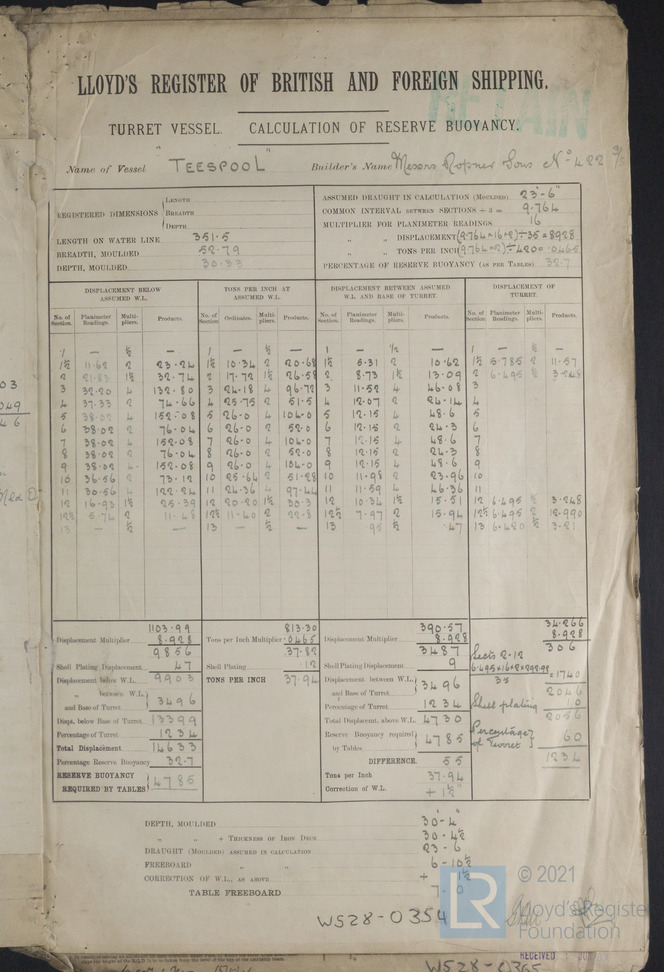 LLOYD'S REGISTER OF BRITISH AND FOREIGN SHIPPING.
TURRET VESSEL. CALCULATION OF RESERVE BUOYANCY.
Name of Vessel "TEESPOOL" Builder's Name Messrs Ropner Sons No 422
REGISTERED DIMENSIONS
LENGTH
BREADTH
DEPTH
LENGTH ON WATER LINE 351.5
BREADTH, MOULDED 52.79
DEPTH, MOULDED 30.33
ASSUMED DRAUGHT IN CALCULATION (MOULDED) 23'-6"
COMMON INTERVAL BETWEEN SECTIONS ÷ 3 = 9.764
MULTIPLIER FOR PLANIMETER READINGS 16
" " DISPLACEMENT (9.764×16×2)÷35 = 8.928
" " TONS PER INCH (9.764×2)÷420 = .0465
PERCENTAGE OF RESERVE BUOYANCY (AS PER TABLES) 32.7
DISPLACEMENT BELOW ASSUMED W.L.
No. of Section. Planimeter Readings. Multipliers. Products.
1 — ½ —
1½ 11.62 2 23.24
2 21.83 1½ 32.74
3 33.20 4 132.80
4 37.33 2 74.66
5 38.02 4 152.08
6 38.02 2 76.04
7 38.02 4 152.08
8 38.02 2 76.04
9 38.02 4 152.08
10 36.56 2 73.12
11 30.56 4 122.24
12 16.93 1½ 25.39
12½ 5.74 2 11.48
13 — ½ —
TONS PER INCH AT ASSUMED W.L.
No. of Section Ordinates. Multipliers. Products.
1 — ½ —
1½ 10.34 2 20.68
2 17.72 1½ 26.58
3 24.18 4 96.72
4 25.75 2 51.5
5 26.0 4 104.0
6 26.0 2 52.0
7 26.0 4 104.0
8 26.0 2 52.0
9 26.0 4 104.0
10 25.64 2 51.28
11 24.36 4 97.44
12 20.20 1½ 30.3
12½ 11.40 2 22.8
13 — ½ —
DISPLACEMENT BETWEEN ASSUMED W.L. AND BASE OF TURRET.
No. of Section. Planimeter Readings. Multipliers. Products.
1 — ½ —
1½ 5.31 2 10.62
2 8.73 1½ 13.09
3 11.52 4 46.08
4 12.07 2 24.14
5 12.15 4 48.6
6 12.15 2 24.3
7 12.15 4 48.6
8 12.15 2 24.3
9 12.15 4 48.6
10 11.98 2 23.96
11 11.59 4 46.36
12 10.34 1½ 15.51
12½ 7.97 2 15.94
13 .95 ½ .47
DISPLACEMENT OF TURRET.
No. of Section. Planimeter Readings. Multipliers. Products.
1 — ½ —
1½ 5.785 2 11.57
2 6.495 ½ 3.248
3
4
5
6
7
8
9
10
11
12 6.495 ½ 3.248
12½ 6.495 2 12.990
13 6.420 ½ 3.21
1103.99
Displacement Multiplier 8.928
9856
Shell Plating Displacement 47
Displacement below W.L. 9903
" between W.L. and Base of Turret 3496
Displt. below Base of Turret 13399
Percentage of Turret 1234
Total Displacement 14633
Percentage Reserve Buoyancy 32.7
RESERVE BUOYANCY REQUIRED BY TABLES 4785
813.30
Tons per Inch Multiplier .0465
37.82
Shell Plating .12
TONS PER INCH 37.94
390.57
Displacement Multiplier 8.928
3487
Shell Plating Displacement 9
Displacement between W.L. and Base of Turret 3496
Percentage of Turret 1234
Total Displacemt. above W.L. 4730
Reserve Buoyancy required by Tables 4785
DIFFERENCE. 55
Tons per Inch 37.94
Correction of W.L. + 1½"
34.266
8.928
306
Sects 2-12
35 = 1740
2046
Shell plating 10
2056
Percentage of Turret 60
1234
DEPTH, MOULDED 30'-4"
" " + THICKNESS OF IRON DECK 30-4½
DRAUGHT (MOULDED) ASSUMED IN CALCULATION 23-6
FREEBOARD " " 6-10½
CORRECTION OF W.L., AS ABOVE + 1½
TABLE FREEBOARD 7.0
W528-0354
LR
© 2021
Lloyd's Register
Foundation
RECEIVED
W528-0365